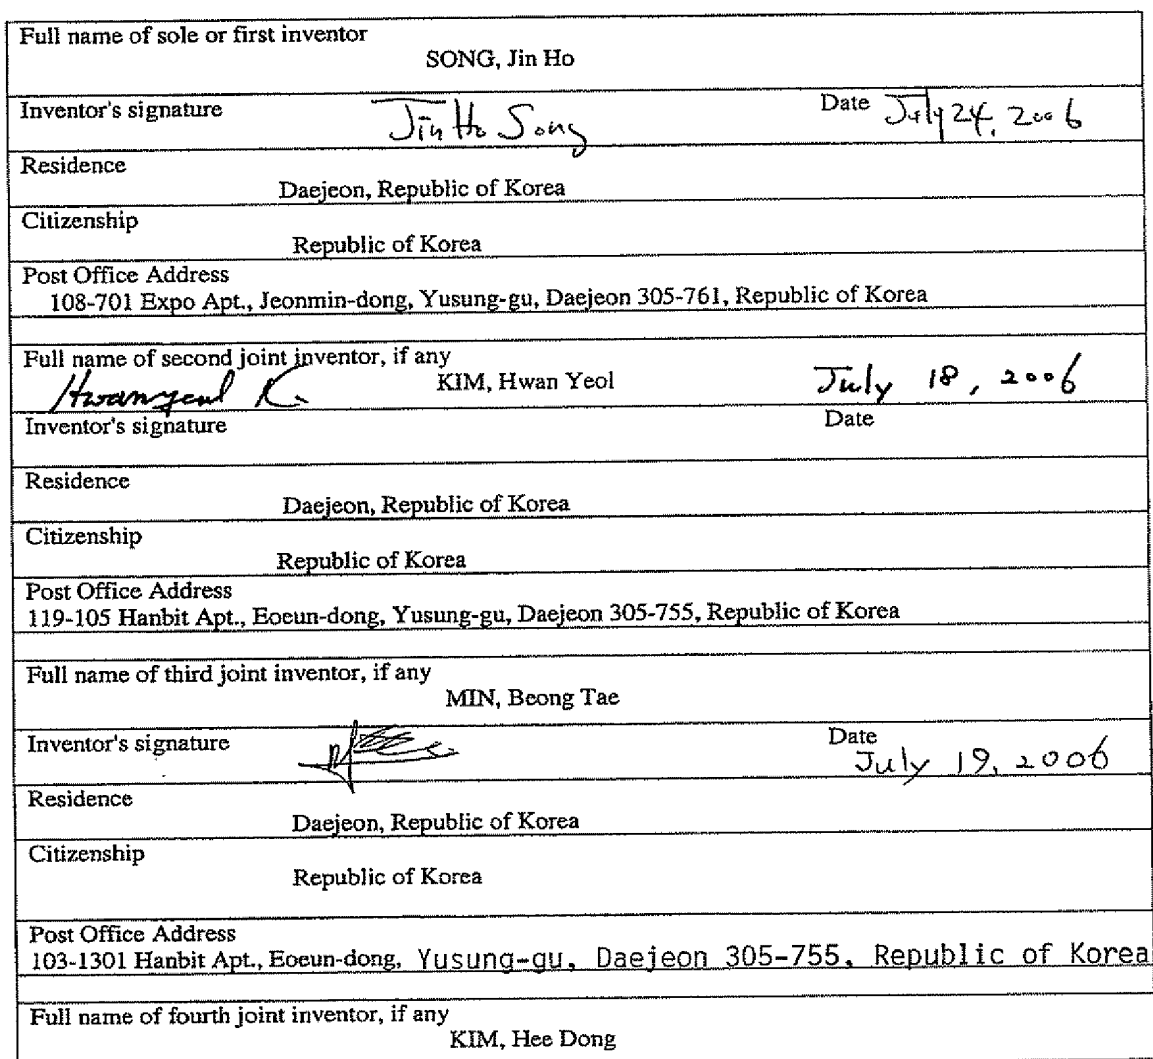 Full name of sole or first inventor
SONG, Jin Ho
Inventor's signature Jin Ho Song Date July 24, 2006
Residence
Daejeon, Republic of Korea
Citizenship
Republic of Korea
Post Office Address
108-701 Expo Apt., Jeonmin-dong, Yusung-gu, Daejeon 305-761, Republic of Korea
Full name of second joint inventor, if any
KIM, Hwan Yeol
Hwanyeul K. July 18, 2006
Inventor's signature Date
Residence
Daejeon, Republic of Korea
Citizenship
Republic of Korea
Post Office Address
119-105 Hanbit Apt., Eoeun-dong, Yusung-gu, Daejeon 305-755, Republic of Korea
Full name of third joint inventor, if any
MIN, Beong Tae
Inventor's signature Date
July 19, 2006
Residence
Daejeon, Republic of Korea
Citizenship
Republic of Korea
Post Office Address
103-1301 Hanbit Apt., Eoeun-dong, Yusung-gu, Daejeon 305-755, Republic of Korea
Full name of fourth joint inventor, if any
KIM, Hee Dong